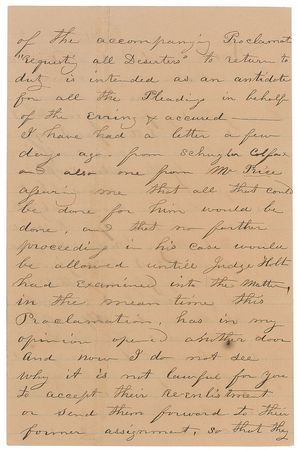 of the accompanying Proclamat
"requesty all Deserters" to return to
duty is intended as an antidote
for all the Pleadings in behalf
of the erring & accused —
I have had a letter a few
days ago from Schuyler Colfax
and also one from Mr Price
assuring me that all that could
be done for him would be
done, and that no further
proceeding in his case would
be allowed untill Judge Holt
had examined into the Matter,
in the mean time this
Proclamation, has in my
opinion opened another door
And now I do not see
why it is not lawful for you
to accept their reenlistment
or send them forward to their
former assignment, so that they